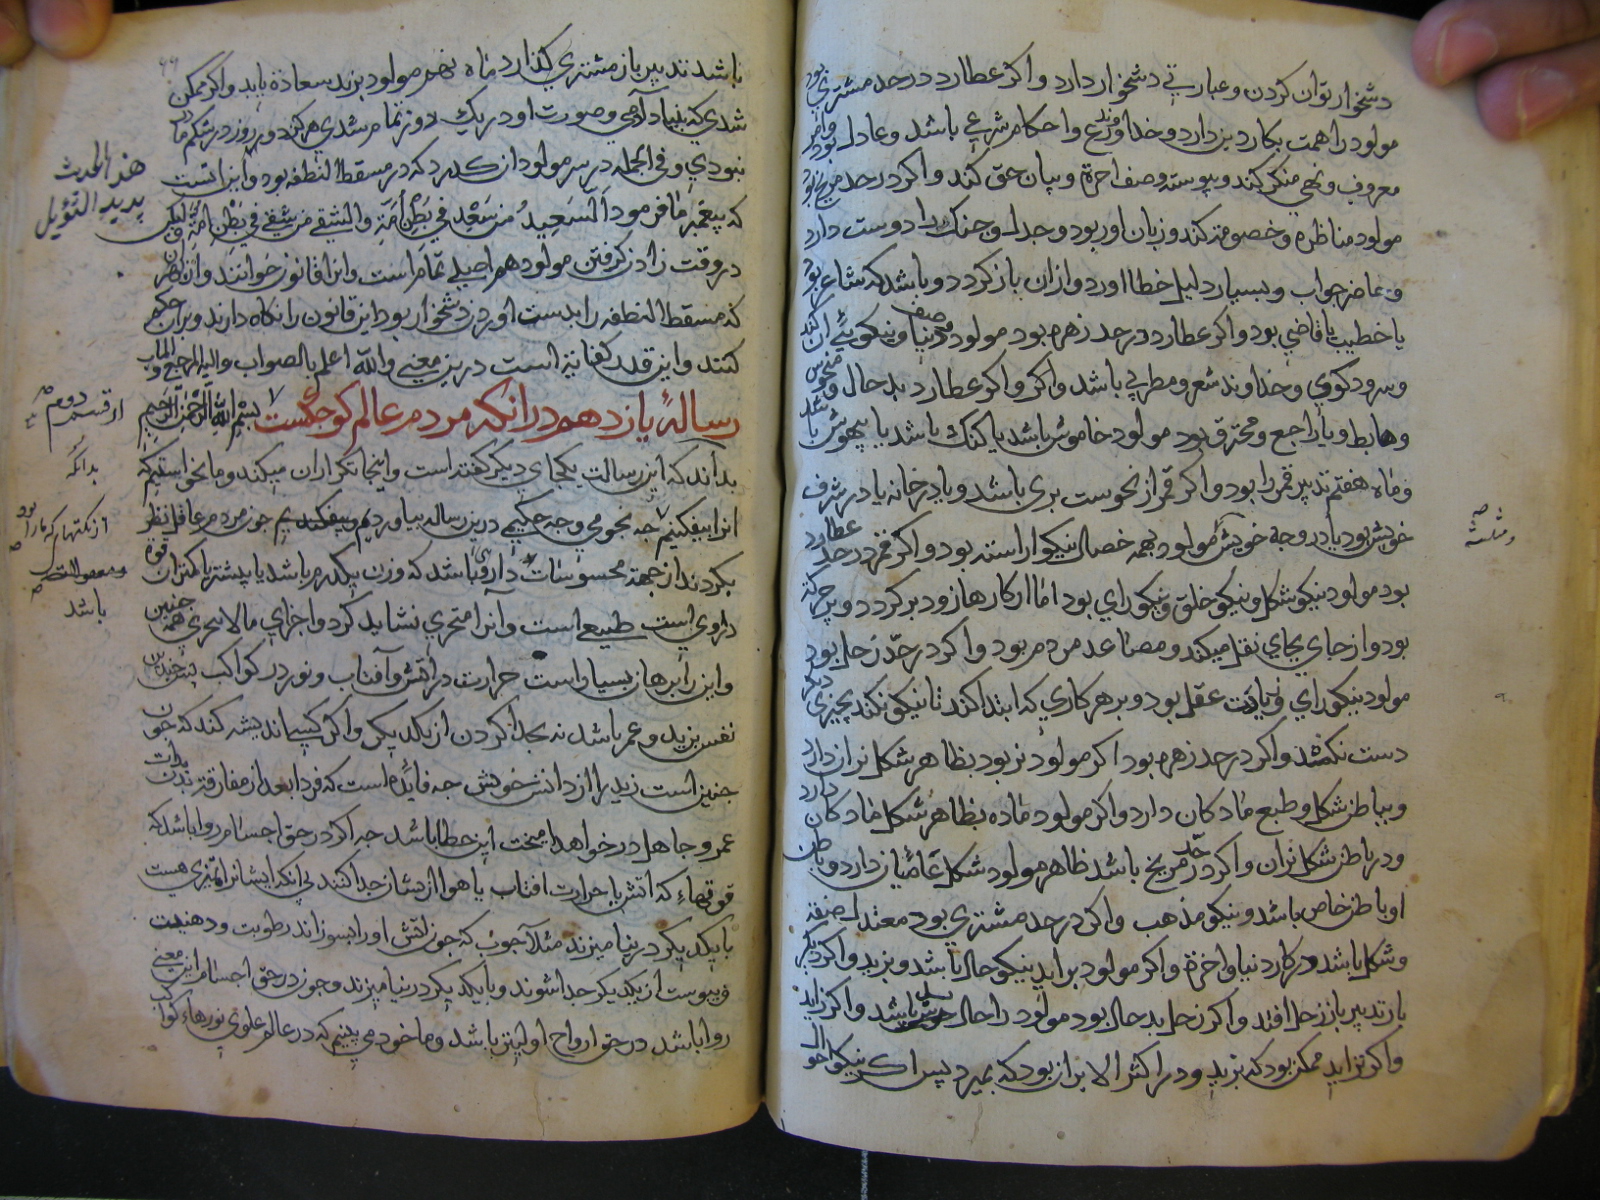 دشخوار توان کردن و عبارتی دشخوار دارد و اکر عطارد در حد مشتری بود
مولود را همت بکار دین دارد و خداوند ورع و احکام شرعی باشد و عادل بود و امر
معروف و نهی منکر کند و پیوسته وصف اخرة و بیان حق کند و اکر در حد مریخ بود
مولود مناظره و خصومة کند و زبان اور بود و جدل و جنک را دوست دارد
و حاضر جواب و بسیار دلیل خطا اورد و از ان باز کردد و باشد که شاعر بود
یا خطیب یا قاضی بود و اکر عطارد در حد زهره بود مولود وصف دنیا و نیکویی ان کند
و سرود کوی و خداوند شعر و مطربی باشد و اکر عطارد بد حال و منحوس
و هابط و یا راجع و محترق بود مولود خاموش باشد یا کنک باشد یا بیهوش باشد
و ماه هفتم تدبیر قمر را بود و اکر قمر از نحوست بری باشد و یا در خانه یا در شرف
خویش بود یا در وجه خویش مولود بهمه خصال نیکو اراسته بود و اکر قمر در حد عطارد
بود مولود نیکو شکل و نیکو خلق و نیکو رای بود اما از کارها زود بر کردد و پر حرکة
بود و از جای بجای نقل میکند و مصاعد مردم بود و اکر در حد زحل بود
مولود نیکو رای و ثابت عقل بود و بر هر کاری که ابتدا کند تا نیکو نکند بچیزی دیکر
دست نکشد و اکر در حد زهره بود اکر مولود نر بود بظاهر شکل نران دارد
و بباطن شکل و طبع مادکان دارد و اکر مولود ماده بظاهر شکل مادکان دارد
و در باطن شکل نران و اکر در حد مریخ باشد ظاهر مولود شکل عاصیان دارد و باطن
او باطن خاص باشد و نیکو مذهب و اکر در حد مشتری بود معتدل صفة
و شکل باشد در کار دنیا و اخرة و اکر مولود بر اید نیکو حال باشد و بزید و اکر دیکر
بار تدبیر باز زحل افتد و اکر زحل بد حال بود مولود را حال بد باشد و اکر زاید
و اکر نزاید ممکن بود که بزید و در اکثر الامر ان بود که بمیرد پس اکر نیکو احوال
و مثلثه
باشد تدبیر باز مشتری کذارد ماه نهم مولود بزند سعادة یابد و اکر ممکن
شدی که بنیاد آدمی و صورت او در یک روز تمام شدی هرکز دو روز در شکم مادر
نبودی و فی الجمله در سر مولود ان کذرد که در مسقط النطفه بود و این انست
که پیغمبر ما فرمود اَلسَعِیدُ مَن سَعِدَ فی بَطْنِ اُمِّه والشقی من شقی فی بَطْنِ اُمِّه و لیکن
در وقت زادن کرفتن مولود هم اصلی تمام است و این را قانون خوانند و از بهر ان
که مسقط النطفه را بدست اوردن دشخوار بود این قانون را نکاه دارند و بر این حکم
کنند و این قدر کفایة است درین معنی والله اعلم بالصواب والیه المرجع والماب
رسالهٔ یازدهم در انکه مردم عالم کوچکست بسم الله الرحمن الرحیم
بدانکه این رسالت یکجای دیکر کفته است و اینجا تکراران میکند و ما نخواستیم که
انرا بیفکنیم چه نحوی وجه حکیم درین رساله بیاوردیم و بیفکندیم چون مردم عاقل نظر
بکردند از جهة محسوسات دارویی باشد که وزن یکدرم باشد یا بیشتر یا کمتر ان قوة
داروی است طبیعی است و آنرا متجزی نشاید کرد و اجزای مالایتجزی همه جنین
و این را برهان بسیار است حرارت در آتش و آفتاب و نور در کواکب پس جدا
نفس زید و عمر باشد نه بجدا کردن از یکدیکر و اکر کسی اندیشه کند که جون
جنین است زید را از دانش خویش جه فایده است که فردا بعد از مفارقة بدن بذات
عمرو جاهل در خواهد امیخت این خطا باشد جه اکر در حق اجسام روا باشد که
قوتهاء که آتش یا حرارت افتاب یا هوا ازیشان جدا کنند بی انکه ایشانرا تمیزی هست
با یکدیکر در نیامیزند مثلاً جوب که جون آتش او را بسوزاند رطوبت و دهنیت
و یبوست از یکدیکر جدا شوند و با یکدیکر در نیامیزند و جون در حق اجسام این معنی
روا باشد در حق ارواح اولیتر باشد و ما خود می بینیم که در عالم علوی نورهاء کواکب
هذا لحدیث
یدید التوٴیل
از قسم دوم
بدانکه
از نکتهای که ما را بود
باشد